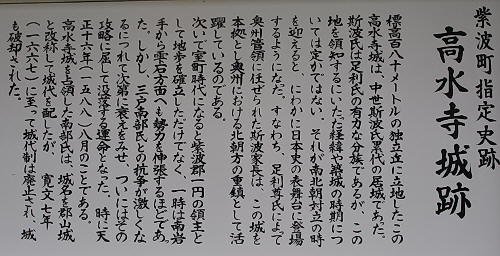 紫波町指定史跡
高水寺城跡
標高百八十メートルの独立丘に立地したこの
高水寺城は、中世斯波氏累代の居城であった。
斯波氏は足利氏の有力な分族であるが、この
地を領知するにいたった経緯や築城の時期につ
いては定かではない。それが南北朝対立の時
を迎えると、にわかに日本史の表舞台に登場
するようになだ。すなわち、足利尊氏によって
奥州管領に任ぜられた斯波家長は、この城を
本拠として奥州における北朝方の重鎮として活
躍しているのである。
次いで室町時代になると紫波郡一円の領主と
して地歩を確立しただけでなく、一時は南岩
手から雫石方面へも勢力を伸張するほどであっ
た。しかし、三戸南部氏との抗争が激しくな
るにつれて次第に衰えをみせ、ついにはその
攻略に屈して没落する運命となった。時に天
正十六年(一五八八)八月のことである。
高水寺城を占領した南部氏は、城名を郡山城
と改称して城代を配したが、寛文七年
(一六六七)に至って城代制は廃止され、城
も破却された。